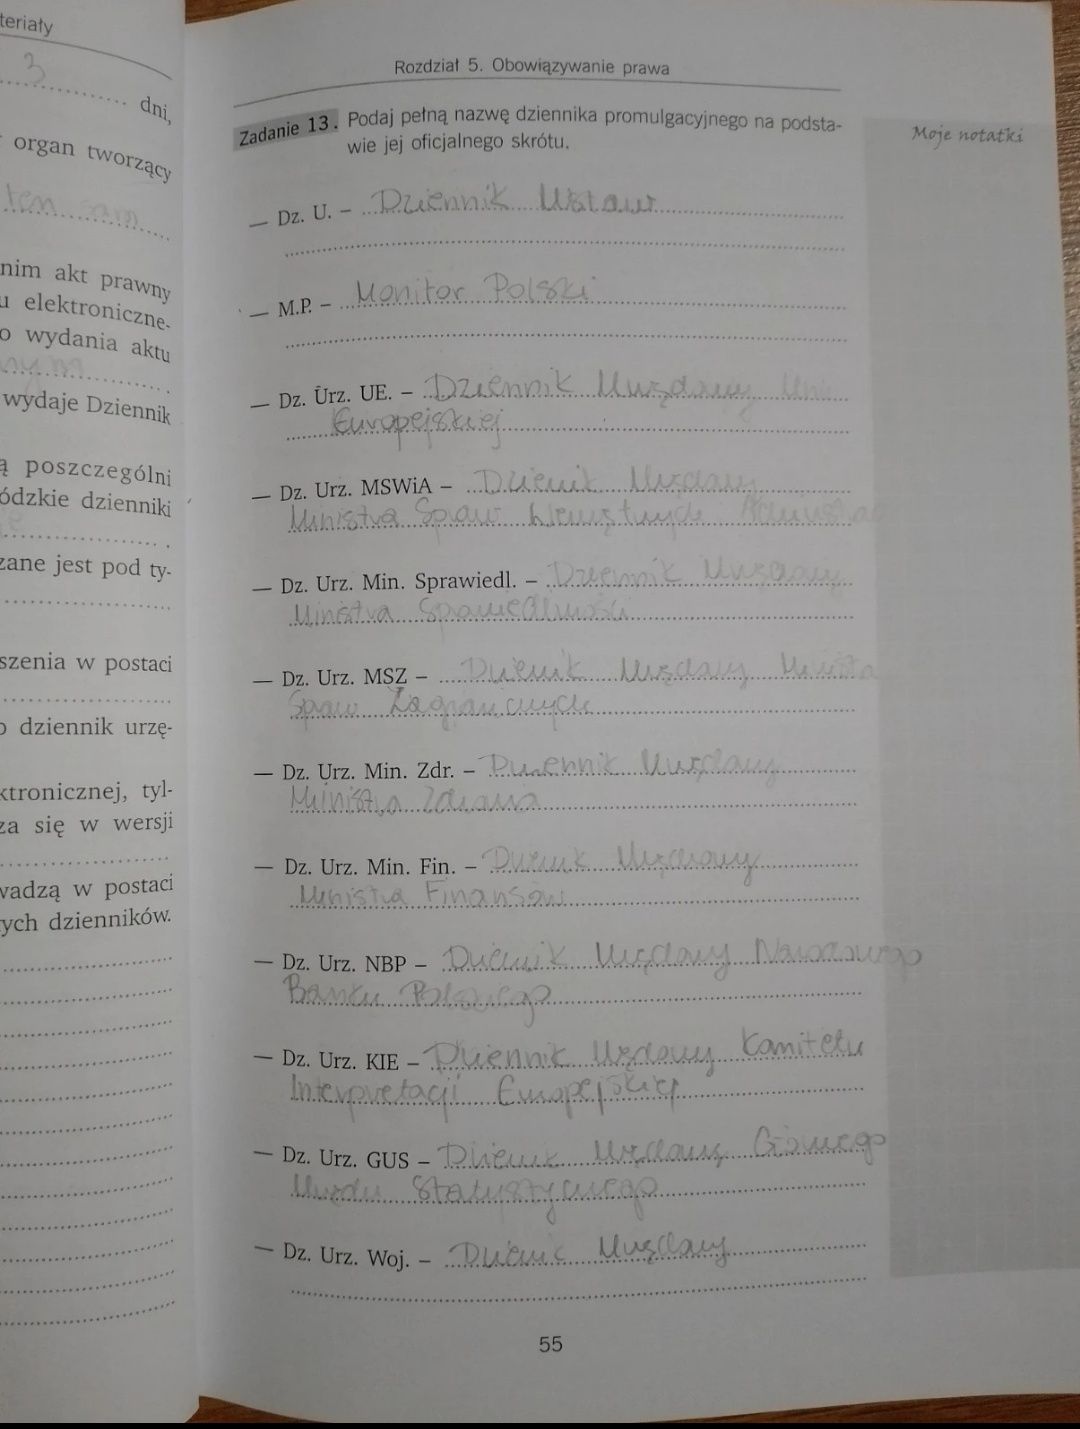 teriały
3
dni,
organ tworzący
ten sam
nim akt prawny
u elektroniczne-
o wydania aktu
nym
wydaje Dziennik
ą poszczególni
ódzkie dzienniki
zane jest pod ty-
szenia w postaci
o dziennik urzę-
ktronicznej, tyl-
za się w wersji
wadzą w postaci
ych dzienników.
Rozdział 5. Obowiązywanie prawa
Zadanie 13. Podaj pełną nazwę dziennika promulgacyjnego na podsta-
wie jej oficjalnego skrótu.
Moje notatki
— Dz. U. – Dziennik Ustaw
— M.P. – Monitor Polski
— Dz. Urz. UE. – Dziennik Urzędowy Unii
Europejskiej
— Dz. Urz. MSWiA – Dziennik Urzędowy
Ministra Spraw Wewnętrznych
— Dz. Urz. Min. Sprawiedl. – Dziennik Urzędowy
Ministra Sprawiedliwości
— Dz. Urz. MSZ – Dziennik Urzędowy Ministra
Spraw Zagranicznych
— Dz. Urz. Min. Zdr. – Dziennik Urzędowy
Ministra Zdrowia
— Dz. Urz. Min. Fin. – Dziennik Urzędowy
Ministra Finansów
— Dz. Urz. NBP – Dziennik Urzędowy Narodowego
Banku Polskiego
— Dz. Urz. KIE – Dziennik Urzędowy Komitetu
Interpretacji Europejskiej
— Dz. Urz. GUS – Dziennik Urzędowy Głównego
Urzędu Statystycznego
— Dz. Urz. Woj. – Dziennik Urzędowy
55